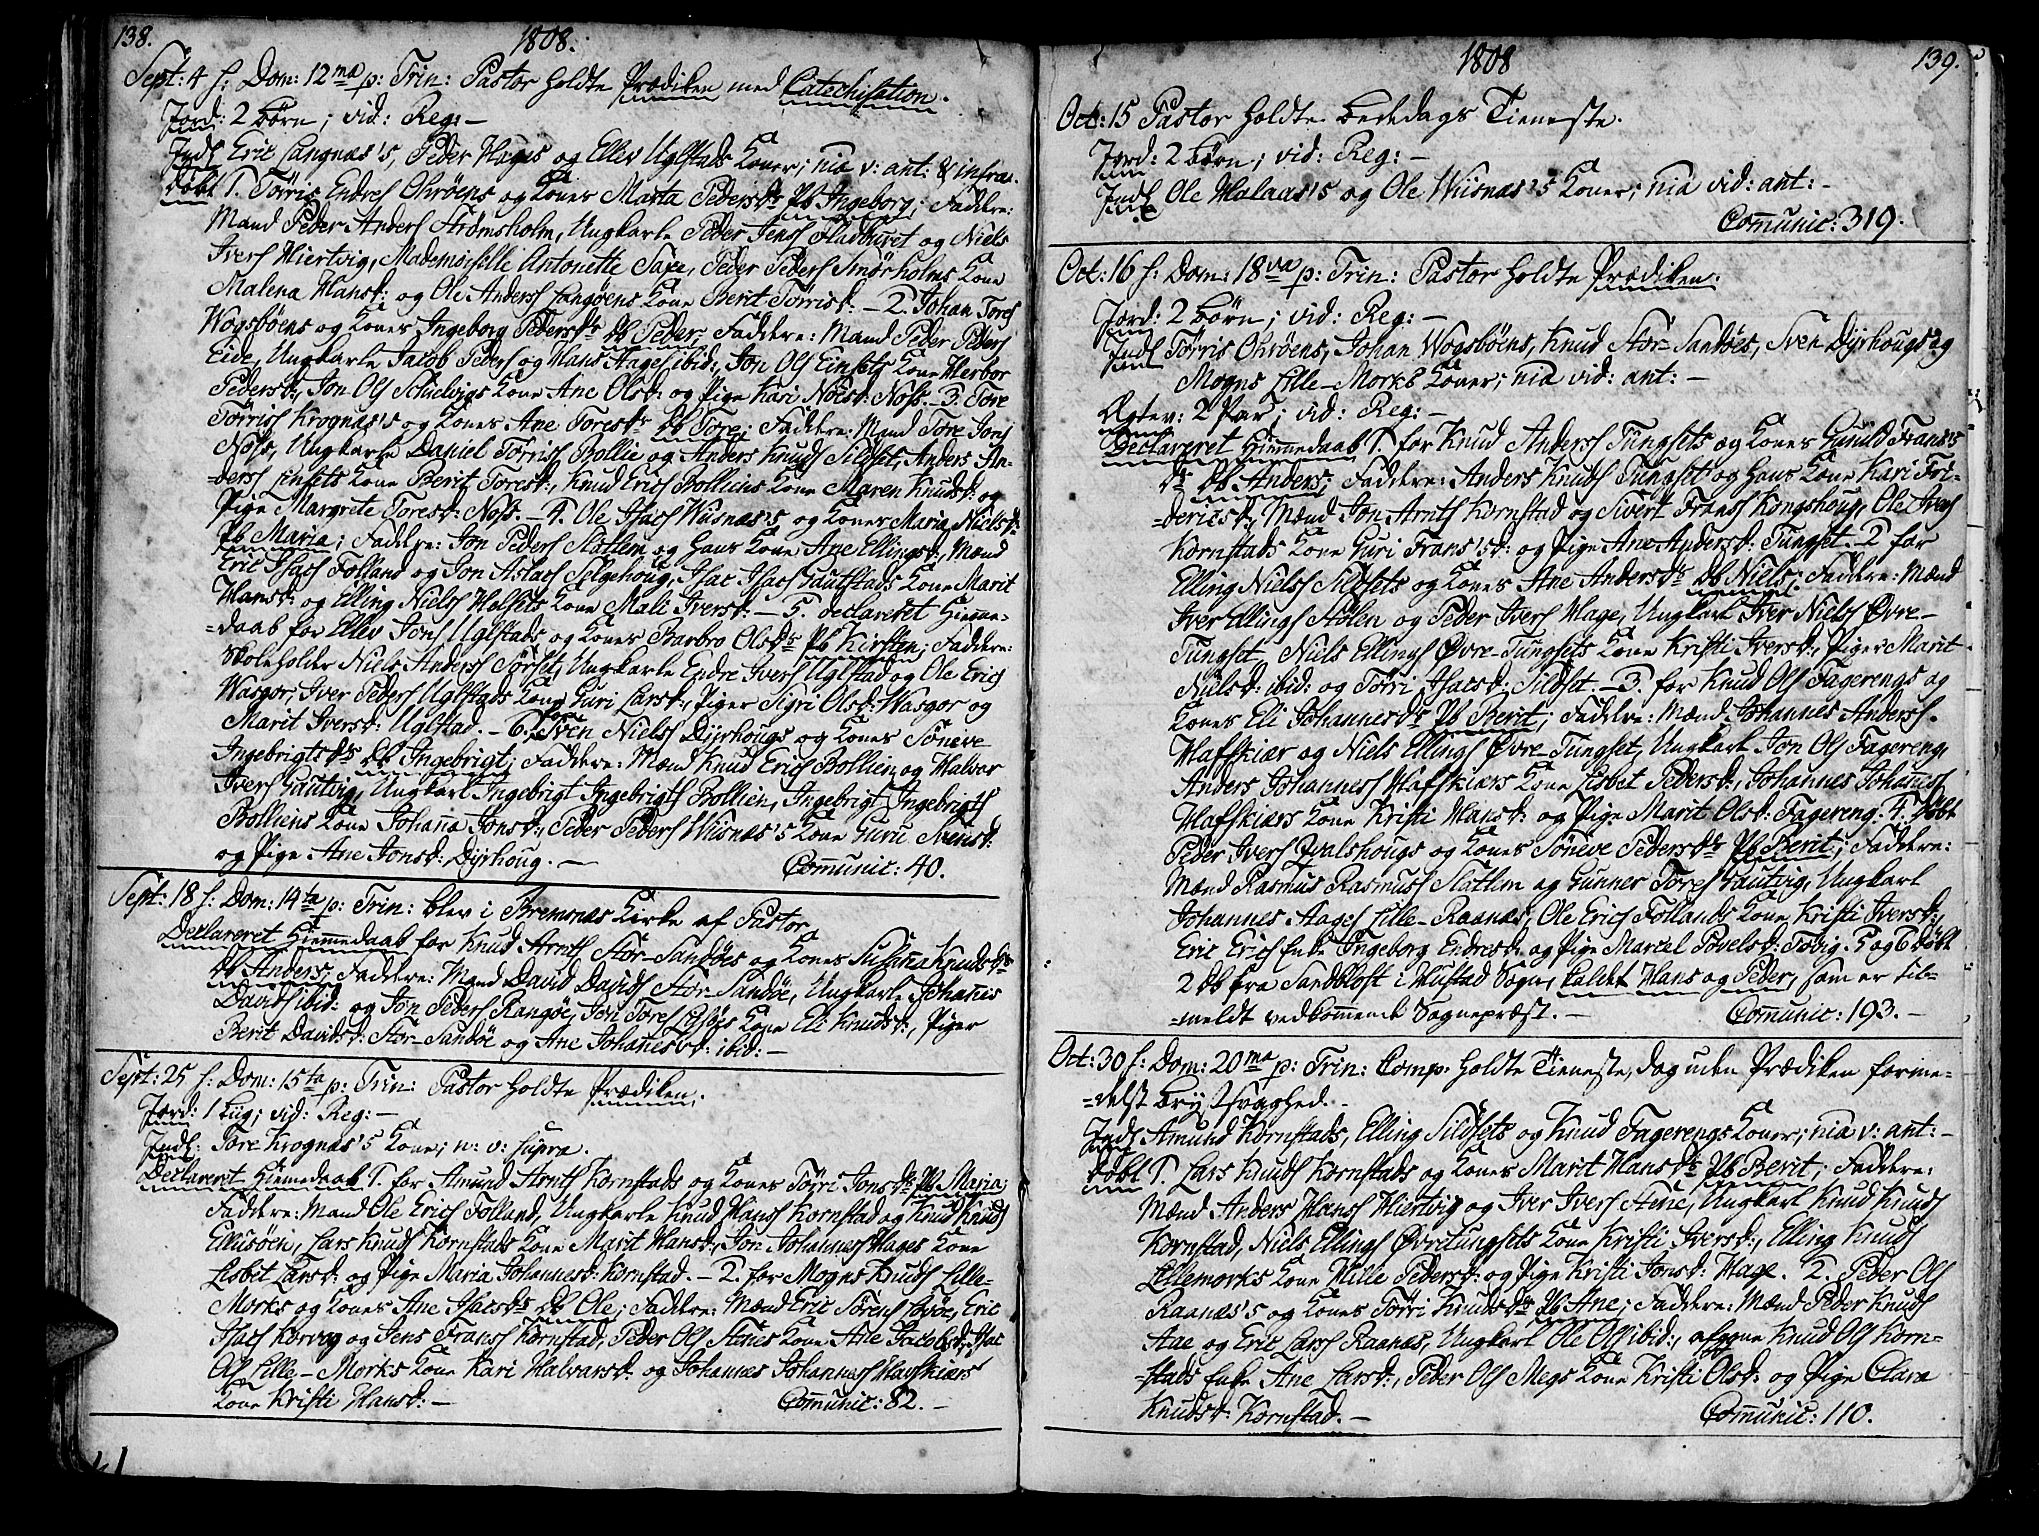 138.
1808.
Sept: 4 f: Dom: 12ma p: Trin: Pastor holdte Prædiken med Catechisation.
Jord: 2 børn; vid: Reg: —
Indl Eric Langnæs's, Peder Hages og Ellev Uglstads Koner; nia v: ant: & infra.
Døbt 1. Tørris Endres Ohrøens og Kones Marta Pedersdr Pb Ingeborg; Faddere:
Mænd Peder Anders Strømsholm, Ungkarle Peder Jens Stadburet og Niels
Ivers Hiertvig, Mademoiselle Antonette Saxe, Peder Peders Smørholms Kone
Malena Hansd: og Ole Anders Langøens Kone Berit Tørrisd: — 2. Johan Tores
Wogsbøens og Kones Ingeborg Pedersdr Db Peder; Faddere: Mænd Peder Peders
Eide, Ungkarle Jacob Peders og Hans Aages ibid:, Jon Ols Einsets Kone Herbor
Pedersd:, Jon Ols Kone Ane Olsd: og Pige Kari Noesd: Noss. — 3. Tore
Tørris Krognæs's og Kones Ane Toresdr Db Tore; Faddere: Mænd Tore Jons
Noss, Ungkarle Daniel Tørris Bollie og Anders Knuds Sildset, Anders An-
ders Einsets Kone Berit Toresd:, Knud Erics Bolliens Kone Maren Knudsd: og
Pige Margrete Toresd: Noss. — 4. Ole Isacs Wiisnæs's og Kones Maria Nielsdr
Pb Maria; Faddere: Jon Peders Slatlem og hans Kone Ane Ellingsd:, Mænd
Eric Isacs Folland og Jon Aslacs Selgehoug, Isac Isacs Gautstads Kone Marit
Hansd: og Elling Niels Halsets Kone Mali Iversd: — 5. declareret Hiemme-
=daab for Ellev Jons Uglstads og Kones Barbro Olsdr Pb Kirsten; Faddere:
Skoleholder Niels Anders Sørset, Ungkarle Endre Ivers Uglstad og Ole Erics
Wasgor, Iver Peders Uglstads Kone Guri Larsd:, Piger Sigri Olsd: Wasgor og
Marit Iversd: Uglstad. — 6. for Sven Niels Dyrhougs og Kones Søneve
Ingebrigtsdr Db Ingebrigt; Faddere: Mænd Knud Erics Bollien og Halvar
Ivers Gautvig, Ungkarl Ingebrigt Ingebrigts Bollien, Ingebrigt Ingebrigts
Bolliens Kone Johana Jonsd:, Peder Peders Wiisnæs's Kone Guru Svensd:
og Pige Ane Jonsd: Dyrhoug. — Communic: 40.
Sept: 18 f: Dom: 14ta p: Trin: blev i Bremsnæs Kirke af Pastor
Declareret Hiemmedaab for Knud Arnts Stor-Sandøes og Kones Susana Knudsdr
Db Anders; Faddere: Mænd David Davids Stor-Sandøe, Ungkarle Johanes
Davids ibid: og Jon Peders Rangøe, Jon Tores Kone Eli Knudsd:, Piger
Berit Davidsd: Stor-Sandøe og Ane Johanesd: ibid: —
Sept: 25 f: Dom: 15ta p: Trin: Pastor holdte Prædiken.
Jord: 1 Lug; vid: Reg: —
Indl: Tore Krognæs's Kone; n: v: supra.
Declareret Hiemedaab 1. for Amund Arnts Kornstads og Kones Tørri Jonsdr Pb Maria;
Faddere: Mænd Ole Erics Folland, Ungkarle Knud Hans Kornstad og Knud Knuds
Ellisøen, Lars Knuds Kornstads Kone Marit Hansd:, Jon Johannes Hages Kone
Lisbet Larsd: og Pige Maria Johannesd: Kornstad. — 2. for Mogns Knuds Lille-
Morks og Kones Ane Isacsdr Db Ole; Faddere: Mænd Eric Sørens, Eric
Isacs Korvog og Jens Frans Kornstad, Peder Ols Stenes Kone Ane Jacobsd:, Isac
Ols Lille-Morks Kone Kari Halvarsd: og Johannes Johannes Hafskiærs
Kone Kristi Hansd: — Communic: 82. —
1808
139.
Oct: 15 Pastor holdte Bededags Tieneste.
Jord: 2 børn; vid: Reg: —
Indl Ole Malaas's og Ole Wiisnæs's Koner; nia vid: ant: —
Communic: 319.
Oct: 16 f: Dom: 18va p: Trin: Pastor holdte Prædiken.
Jord: 2 børn; vid: Reg: —
Indl Tørris Ohrøens, Johan Wogsbøens, Knud Stor-Sandøes, Sven Dyrhougs og
Mogns Lille-Morks Koner; nia vid: ant: —
Ægtev: 2 Par; vid: Reg: —
Declareret Hiemmedaab 1. for Knud Anders Tungsets og Kones Gunild Frans's
dr Db Anders; Faddere: Anders Knuds Tungset og hans Kone Kari Fri-
=dericsd:, Mænd Jon Arnts Kornstad og Sivert Frans Kongshoug, Ole Ivers
Kornstads Kone Guri Frans'sd: og Pige Ane Andersd: Tungset. 2 for
Elling Niels Sildsets og Kones Ane Andersdr Db Niels; Faddere: Mænd
Iver Ellings Stølen og Peder Ivers Hage, Ungkarl Iver Niels Øvre-
Tungset, Niels Ellings Øvre-Tungsets Kone Kristi Iversd:, Piger Marit
Nielsd: ibid: og Tørri Isacsd: Sildset. — 3. for Knud Ols Fagerengs og
Kones Eli Johannesdr Pb Berit; Faddere: Mænd Johannes Anders
Hafskiær og Niels Ellings Øvre-Tungset, Ungkarl Jon Ols Fagereng,
Anders Johannes Hafskiærs Kone Lisbet Pedersd:, Johannes Johannes
Hafskiærs Kone Kristi Hansd: og Pige Marit Olsd: Fagereng. 4. Døbt
Peder Ivers Qvalshougs og Kones Søneve Pedersdr Pb Berit; Faddere:
Mænd Rasmus Rasmus Slatlem og Gunner Tores Gautvig, Ungkarl
Johannes Aages Lille-Raanæs, Ole Erics Follands Kone Kristi Iversd:,
Eric Erics Enke Ingeborg Endresd: og Pige Marcel Povelsd: Tøvig. 5 og 6 døbt
2 Db fra Sandblost i Hustad Sogn, kaldet Hans og Peder, som er til-
=meldt vedkommende Sognepræst. — Communic: 193. —
Oct: 30 f: Dom: 20ma p: Trin: Comp. holdte Tieneste, dog uden Prædiken forme-
=delst Brystsvaghed. —
Indl Amund Kornstads, Elling Sildsets og Knud Fagerengs Koner; nia v: ant: —
Døbt 1. Lars Knuds Kornstads og Kones Marit Hansdr Pb Berit; Faddere:
Mænd Anders Hans Hiertvig og Iver Ivers Stene, Ungkarl Knud Knuds
Kornstad, Niels Ellings Øvretungsets Kone Kristi Iversd:, Elling Knuds
Lillemorks Kone Pedersd: og Pige Kristi Jonsd: Hage. 2. Peder Ols
Raanæs's og Kones Tørri Knudsdr Pb Ane; Faddere: Mænd Peder Knuds
Aae og Eric Lars Raanæs, Ungkarl Ole Ols ibid:, afgone Knud Ols Korn-
=stads Enke Ane Larsd:, Peder Ols Megs Kone Kristi Olsd: og Pige Clara
Knudsd: Kornstad. — Communic: 110.